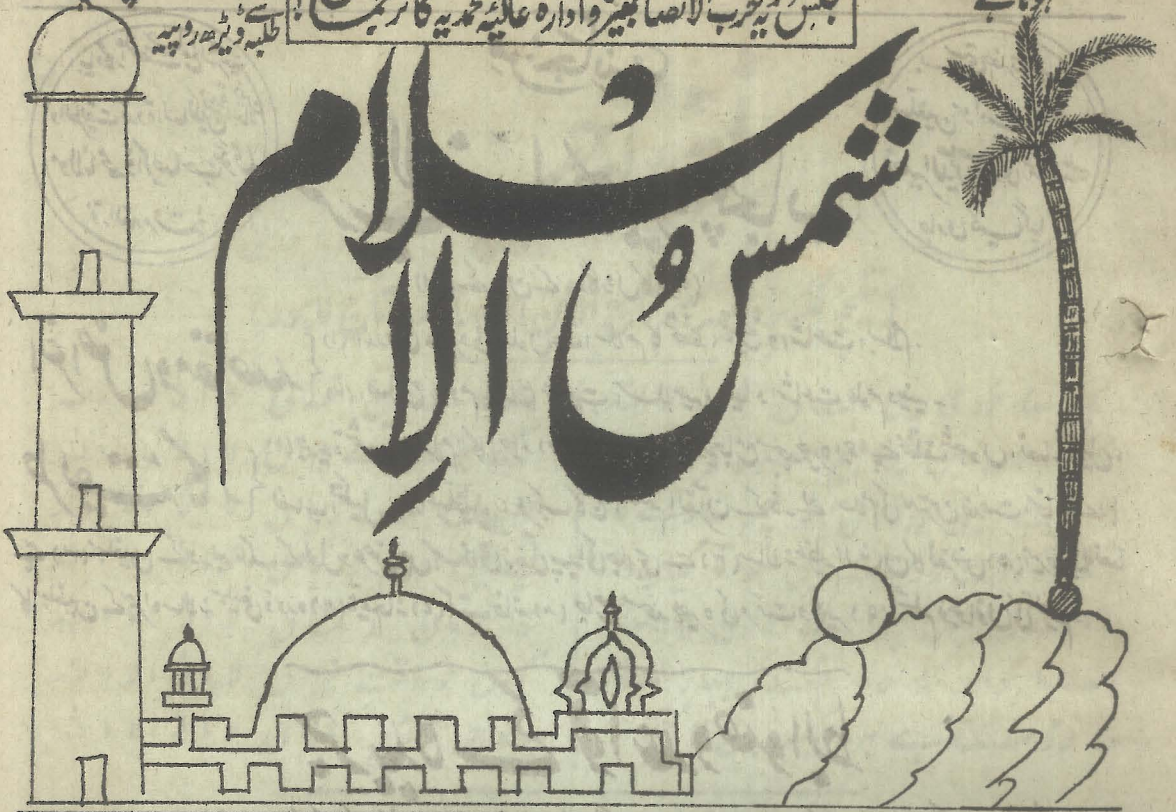 ہوتا ہے
مجلس مرکزیہ حزب الانصار بھیرہ و ادارہ عالیہ محمدیہ کا ترجمان
سے
طلبہ ڈیڑھ روپیہ
شمسُ الاِسلام